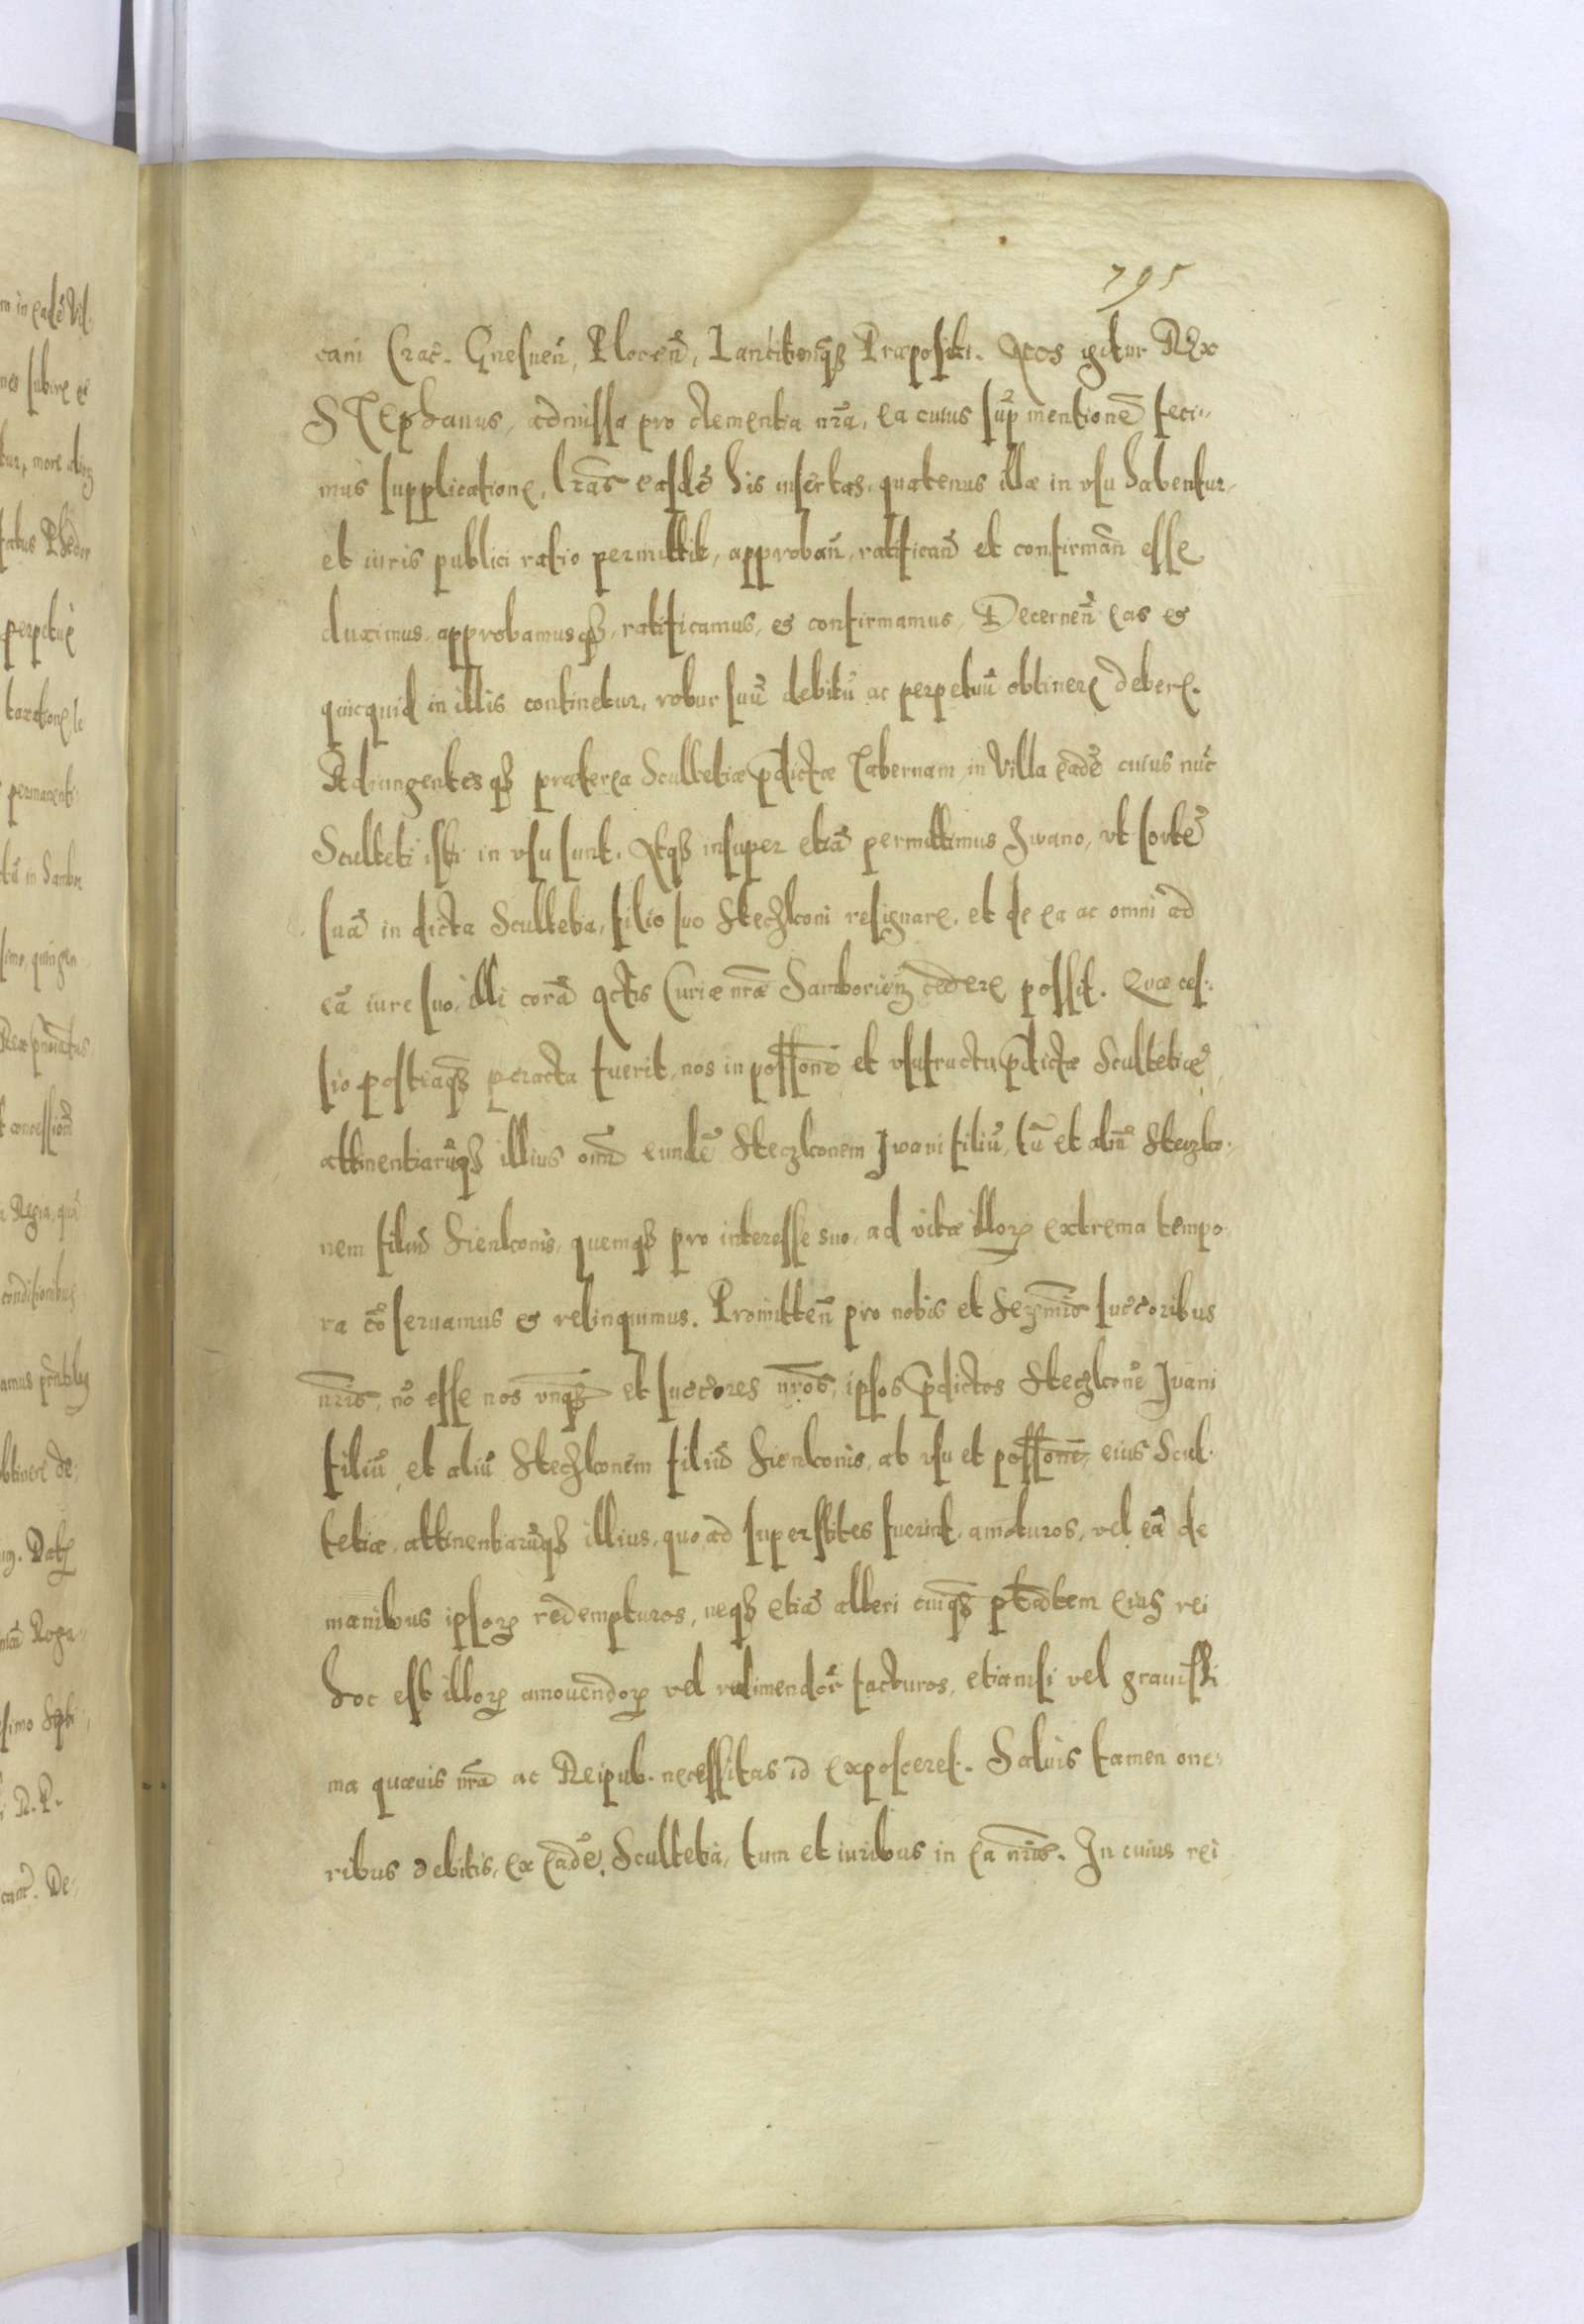 795
cani Crac̄. Gnesnen̄, Plocen̄, Lancitien̄qȝ Præpositi. Nos igitur Rex
Stephanus, admissa pro clementia nr̄a, ea cuius sup̄ mentionē feci-
mus supplicatione, lr̄as easdē his insertas, quatenus illæ in vsu habentur,
et iuris publici ratio permittit, approban̄, ratifican̄ et confirman̄ esse
duximus, approbamusqȝ, ratificamus, et confirmamus, Decernen̄ eas et
quicquid in illis continetur, robur suū debitū ac perpetuū obtinere debere.
Adiungentesqȝ præterea Scultetiæ p̄dictæ Tabernam in Villa eadē cuius nūc
Sculteti isti in vsu sunt. Atqȝ insuper etiā permittimus Iwano, vt sortē
suā in dicta Scultetia, filio suo Steczkoni resignare, et de ea ac omni ad
eā iure suo, illi corā Actis Curiæ nr̄æ Samborien̄ cedere possit. Quæ ces-
sio posteaqȝ peracta fuerit, nos in possionē et vsufructu p̄dictæ Scultetiæ
attinentiarūqȝ illius oīm̄ eundē Steczkonem Iwani filiū, tū et aliū Steczko-
nem filiū Sienkonis, quemqȝ pro interesse suo, ad vitæ illorꝝ extrema tempo-
ra cōseruamus et relinquimus. Promitten̄ pro nobis et Serm̄is succ̄oribus
nr̄is, nō esse nos vnqȝ et succ̄ores nr̄os, ipsos p̄dictos Steczkonē Iwani
filiū, et aliū Steczkonem filiū Sienkonis, ab vsu et possionē eius Scul-
tetiæ, attinentiarūqȝ illius, quoad superstites fuerint, amoturos, vel eā de
manibus ipsorꝝ redempturos, neqȝ etiā alteri cuiqȝ ptātem eius rei
hoc est illorꝝ amouendorꝝ vel redimendor̄ facturos, etiamsi vel grauissi-
ma quæuis nr̄a ac Reipub. necessitas id exposceret. Saluis tamen one-
ribus debitis, ex eadē Scultetia, tum et iuribus in ea nr̄is. In cuius rei